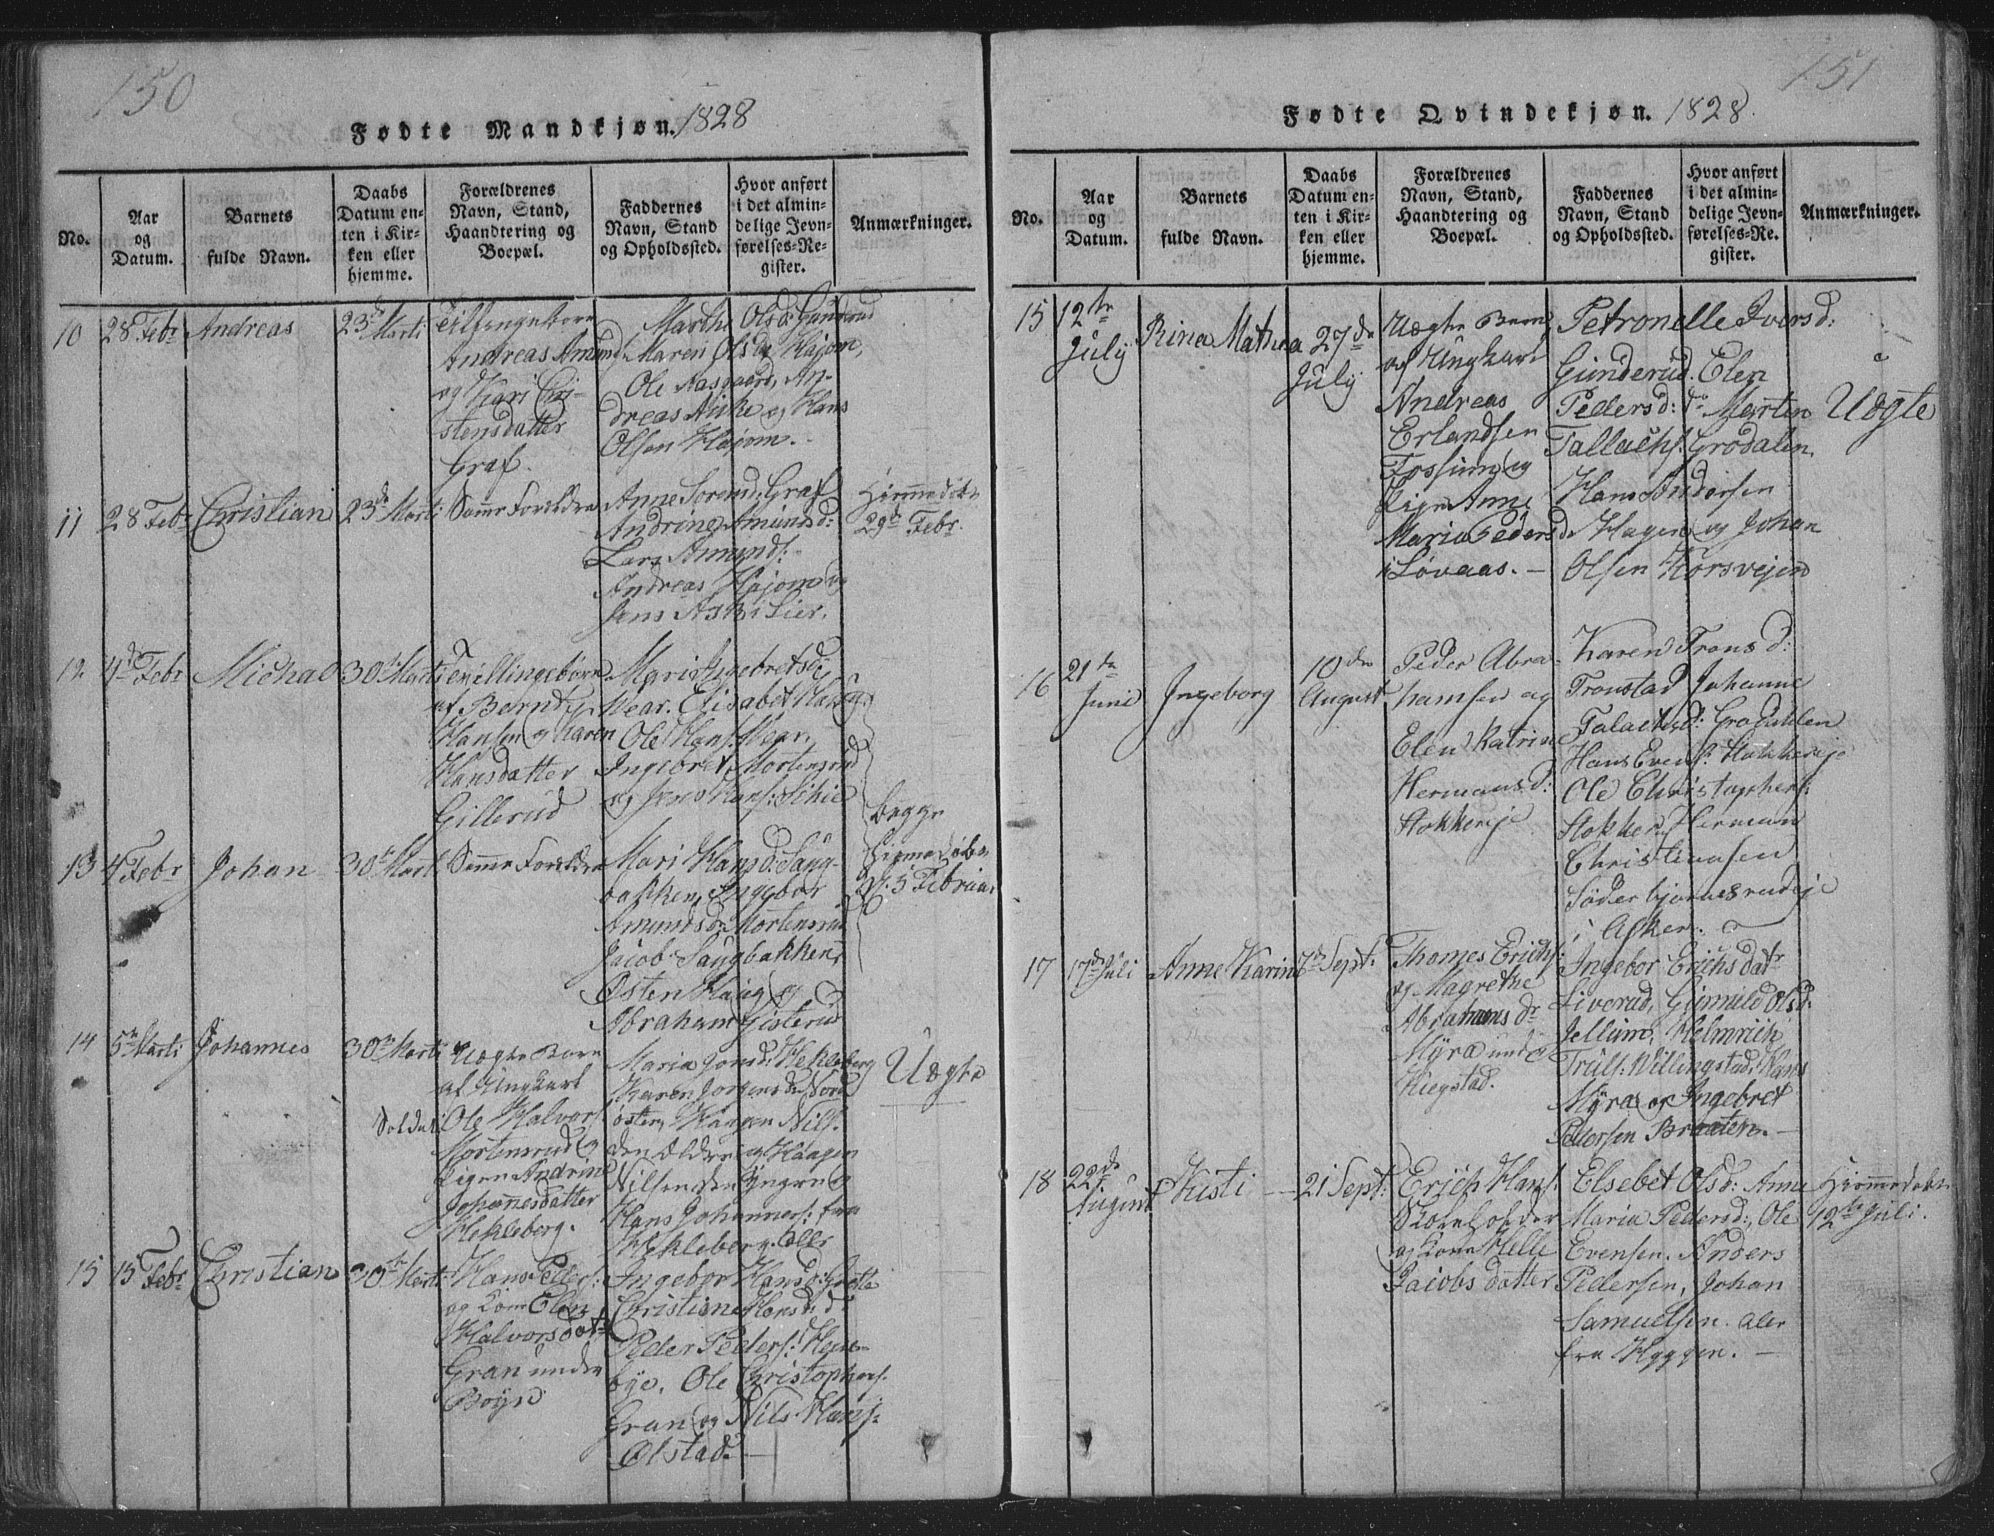 150
Fødte Mandkjøn. 1828
No.
Aar
og
Datum.
Barnets
fulde Navn.
Daabs
Datum en-
ten i Kir-
ken eller
hjemme.
Forældrenes
Navn, Stand,
Haandtering og
Boepæl.
Faddernes
Navn, Stand
og Opholdssted.
Hvor anført
i det almin-
delige Jevn-
førelses-Re-
gister.
Anmærkninger.
10
28 Febr
Andreas
23d Marti
Andreas Amunds
og Kari Chri-
stensdatter
Graf.
Marthe Olsd: Gunderud
Maren Olsdr Hajom,
Ole Aasgaard, An-
dreas Aske og Hans
Olsen Hajom.
11
28 Febr
Christian
23de Marti
Samme Forældre
Anne Sorensd: Graf
Andrine Amundsd:
Lars Amunds:
Andreas Hajom og
Jens Ask i Lier.
Hjemmedøbt
29d Febr.
12.
4d Febr
Michal
30te Marti
Tvillingebørn
af Bernt
Hansen og Karen
Hansdatter
Gillerud
Mari Ingebretsdr
Wear. Elisabet Haug,
Ole Hans: Wear,
Ingebret Mortensrud
og Jens Hans:
13
4 Febr
Johan
30te Marti
Samme Forældre
Mari Hansd: Saug-
bakken, Ingebor
Amundsdr Mortensrud
Jacob Saugbakken,
Østen Haug og
Abraham Gisterud
begge
hjemmedøbte
d: 5 Februar
14
5te Marti
Johannes
30te Marti
Uægte Barn
af Ungkarl
Soldat Ole Halvors:
Mortensrud og
Pigen Andrine
Johannesdatter
Hekleberg.
Maria Jonsd: Hekleberg
Karen Jorgensdr Nord
østen, Haagen Nils:
den Ældre og Haagen
Nilsen den Yngre og
Hans Johannes: fra
Hekleberg. Alle
Uægte
15
15 Febr
Christian
30te Marti
Hans Peders:
og Kone Elen
Halvorsdatr
Gran under
Bøyse
Ingebor Hansd:
Christiane Hansd:
Peder Peders: Hene-
bye, Ole Christophers:
Gran og Nils Hans:
Olstad. —
151
Fødte Qvindekjøn. 1828.
No.
Aar
og
Datum.
Barnets
fulde Navn.
Daabs
Datum en-
ten i Kir-
ken eller
hjemme.
Forældrenes
Navn, Stand,
Haandtering og
Boepæl.
Faddernes
Navn, Stand
og Opholdssted.
Hvor anført
i det almin-
delige Jevn-
førelses-Re-
gister.
Anmærkninger.
15
12te
July
Rina Mathea
27de
July
Uægte Barn
af Ungkarl
Andreas
Erlandsen
Fossum og
Pige Anne
Maria Pedersd
i Løvaas. —
Petronelle Iversd:
Gunderud. Elen
Pedersd: do Morten
Tallachs: Grodalen.
Hans Andersen
Hagen og Johan
Olsen Korsvejen
Uægte
16
21te
Juni
Ingeborg
10de
August
Peder Abra-
hamsen og
Elen Katrine
Hermansd:
Stokkerje
Karen Tronsd:
Tronstad Johanne
Talachsd: Grodahlen
Hans Evens: Stokkerije
Ole Christophers:
Stokker, Herman
Christiansen
Søderbjornsrudeje
i Asker. —
17
17de Juli
Anne Karine
7de Sept:
Thomes Erichs:
og Magrethe
Abrahamsdr
Myra under
Kiegstad.
Ingebor Erichsdatr
Liverud, Gunnild Olsd:
Jellum, Helmrich
Truls: Willingstad, Hans
Myra og Ingebret
Pedersen Braaten. —
18
22de
August
Kusti
21 Sept:
Erich Hans:
og Kone Helle
Jacobsdatter
Elsebet Olsd: Anne
Maria Pedersd:, Ole
Evensen. Anders
Pedersen, Johan
Samuelsen. Aler
fra Hyggen. —
Hjemmedøbt
12te Juli.